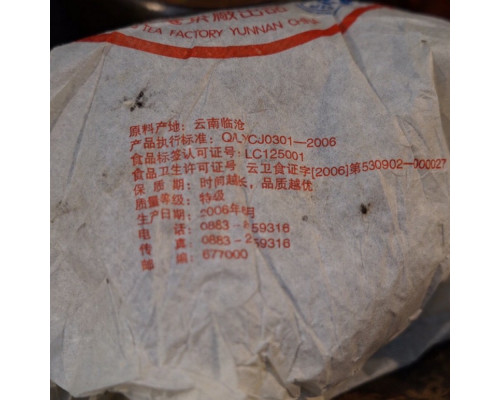 TEA FACTORY YUNNAN CHINA
原料产地：云南临沧
产品执行标准：Q/LYCJ0301—2006
食品标签认可证号：LC125001
食品卫生许可证号：云卫食证字[2006]第530902—000027
保 质 期：时间越长，品质越优
质量等级：特级
生产日期：2006年 月
电 话：0883- 59316
传 真：0883-2 59316
邮 编：677000